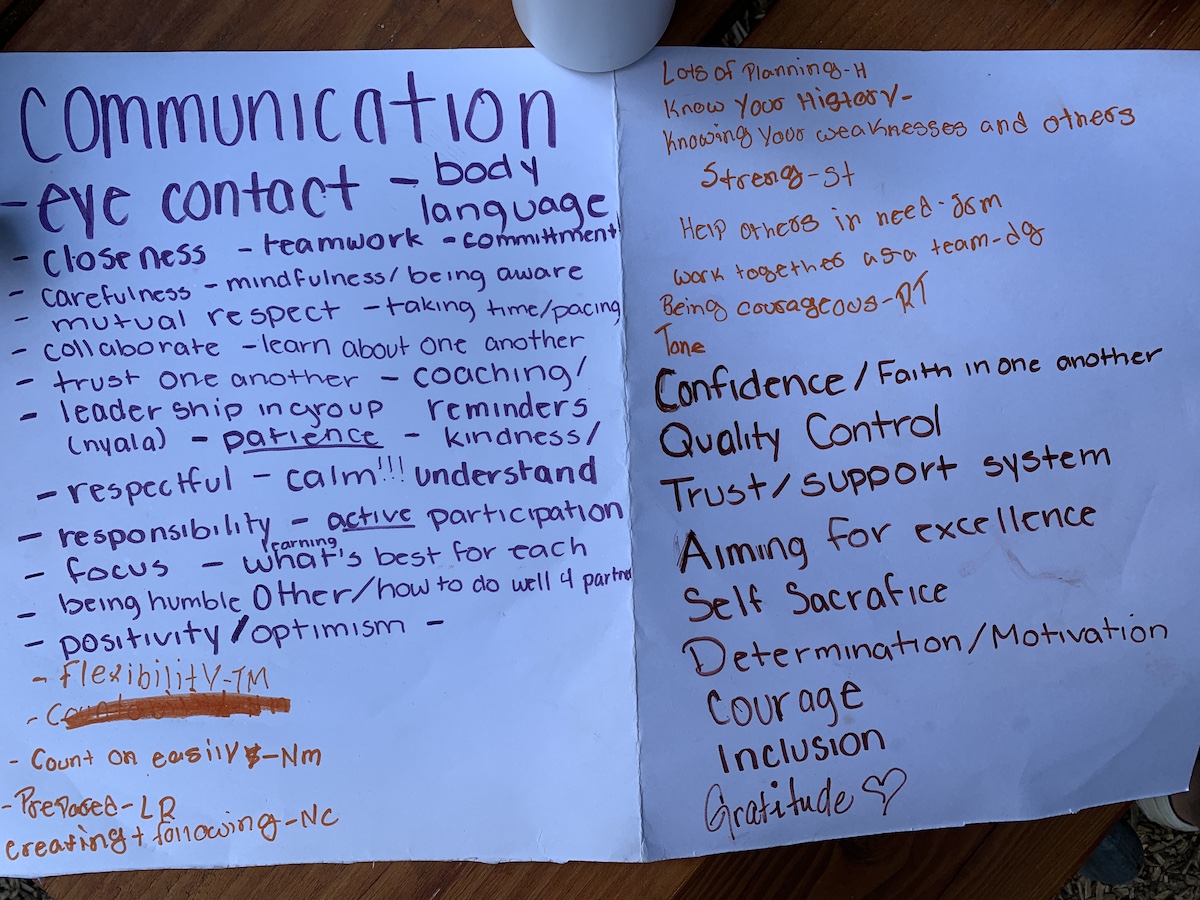 Communication
- eye contact - body
language
- closeness - teamwork - committment
- carefulness - mindfulness/being aware
- mutual respect - taking time/pacing
- collaborate - learn about one another
- trust one another - coaching/
- leadership in group reminders
(nyala) - patience - kindness/
- respectful - calm!!! understand
- responsibility - active participation
- focus - learning what's best for each
- being humble other/how to do well 4 partner
- positivity/optimism -
- Flexibility-TM
- Count on easily-Nm
- Prepared-LR
creating + following-Nc
Lots of Planning-H
Know Your History-
Knowing Your weaknesses and others
Streng-st
Help others in need-jsm
work together as a team-dg
Being courageous-RT
Tone
Confidence/Faith in one another
Quality Control
Trust/support system
Aiming for excellence
Self Sacrafice
Determination/Motivation
Courage
Inclusion
Gratitude ♡